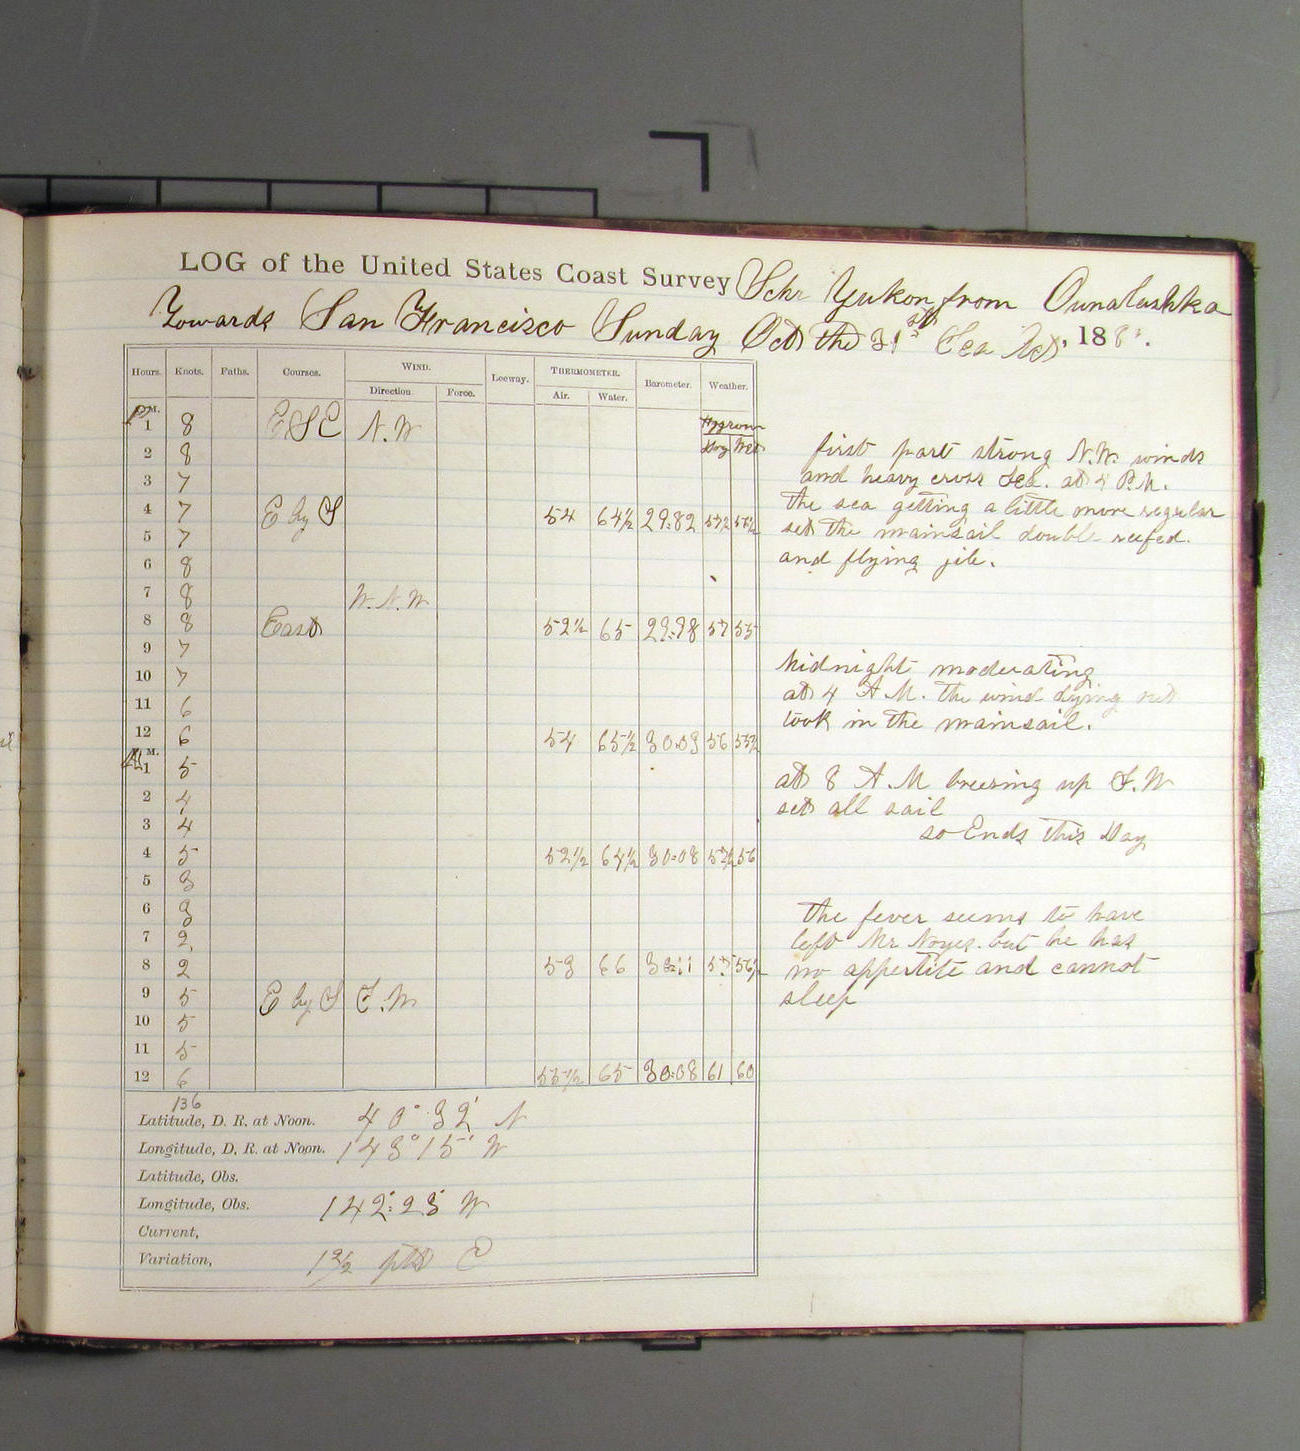 LOG of the United States Coast Survey Schr Yukon from Ounalashka
Towards San Francisco Sunday Oct the 31st Sea Act, 188
Hours. Knots. Faths. Courses. WIND. Leeway. THERMOMETER. Barometer. Weather.
Direction Force. Air. Water.
P.M. Hygrom
1 8 ESE N.W
2 8 Dry Wet
3 7
4 7 E by S 54 64½ 29.82
5 7
6 8
7 8 W.N.W
8 8 East 52½ 65 29.98 57 55
9 7
10 7
11 6
12 6 54 65½ 30.03 56 55½
A.M.
1 5
2 4
3 4
4 5 52½ 64½ 30.08 56
5 3
6 3
7 2
8 2 53 66 30:11 56½
9 5 E by S S.W
10 5
11 5
12 6 55½ 65 30:08 61 60
136
Latitude, D. R. at Noon. 40° 32' N
Longitude, D. R. at Noon. 143° 15' W
Latitude, Obs.
Longitude, Obs. 142:23 W
Current,
Variation, 1½ pts E
first part strong N.W. winds
and heavy cross sea. at 4 P.M.
the sea getting a little more regular
set the mainsail double reefed.
and flying jib.
Midnight moderating
at 4 A.M. the wind dying out
took in the mainsail.
at 8 A.M breezing up S.W
set all sail
so Ends this Day
the fever seems to have
left Mr Noyes. but he has
no appertite and cannot
sleep